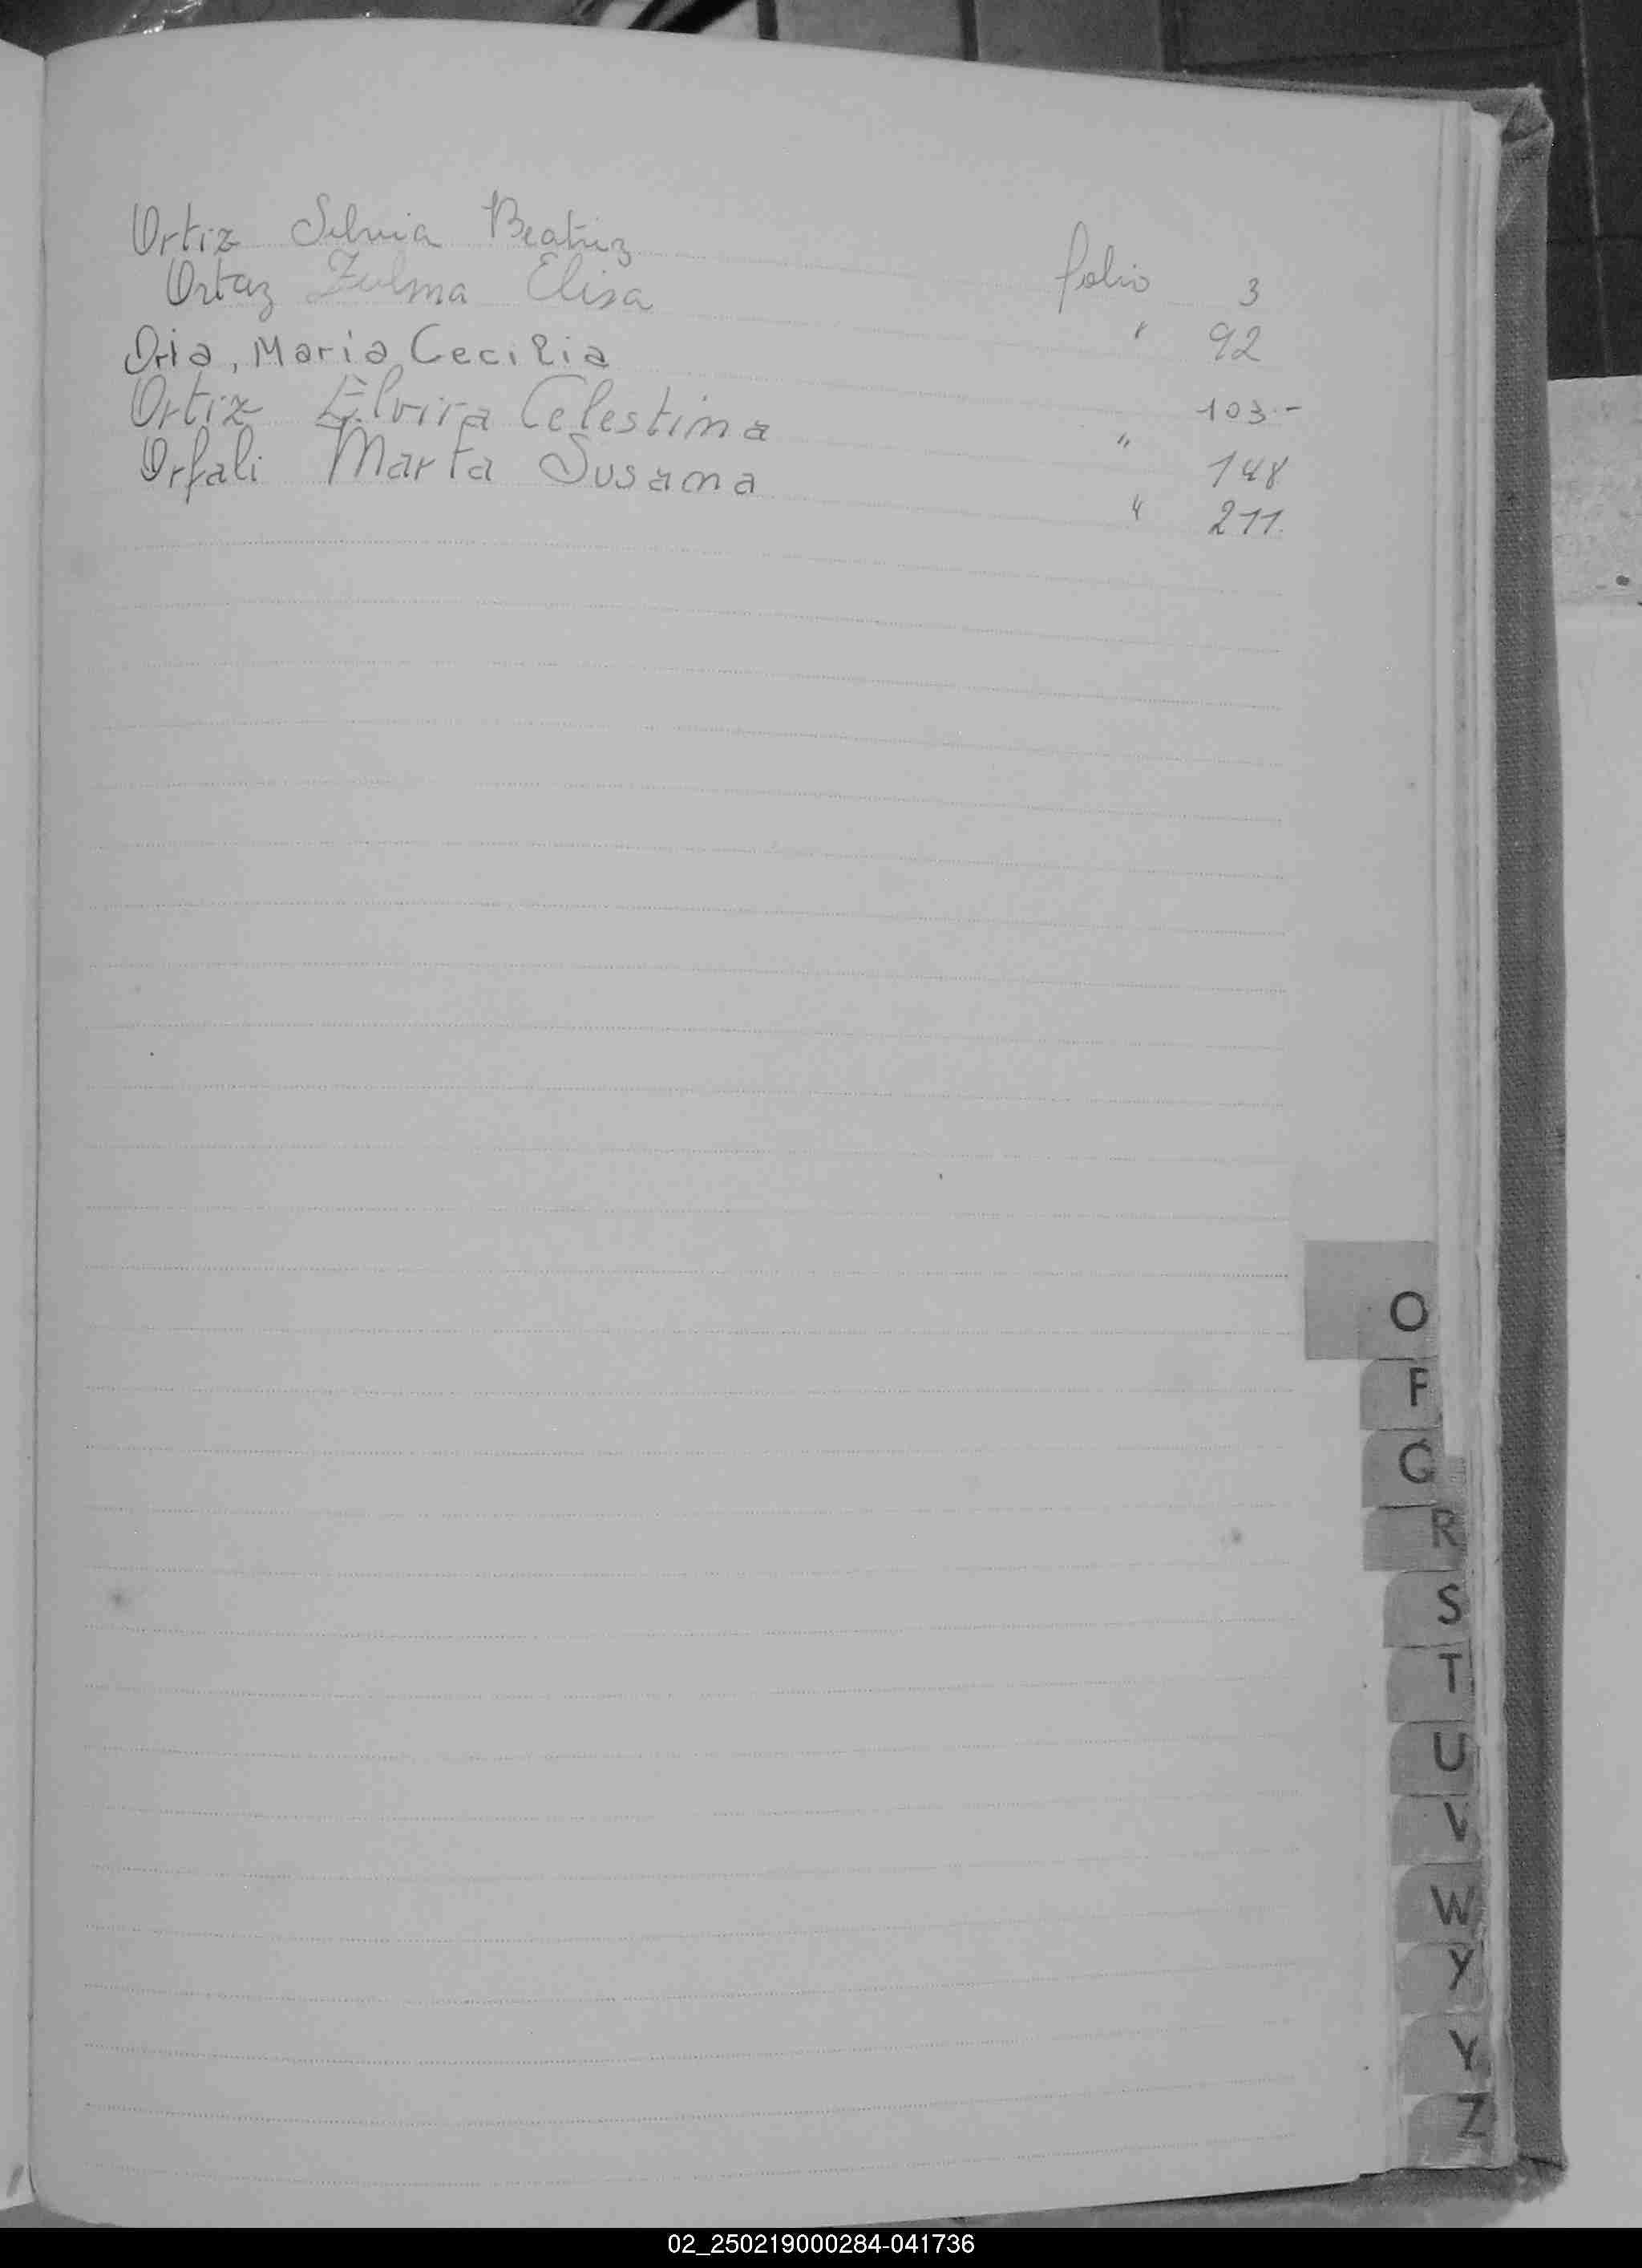 Ortiz Silvia Beatriz folio 3
Ortaz Zulma Elisa " 92
Oria, Maria Cecilia 103.-
Ortiz Elvira Celestina " 148
Orfali Marta Susana " 211.
O
P
Q
R
S
T
U
V
W
Y
Y
Z
02_250219000284-041736